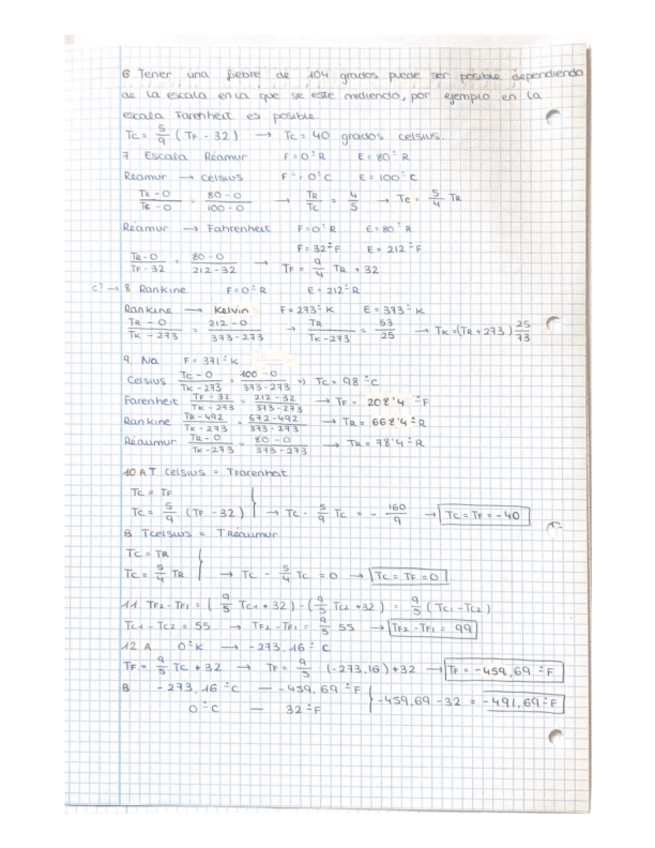 6 Tener una fiebre de 104 grados puede ser posible dependiendo
de la escala en la que se este midiendo, por ejemplo en la
escala Farenheit es posible.
Tc = 5/9 (TF - 32) → Tc = 40 grados celsius.
7 Escala Réamur F = 0°R E = 80°R
Reamur → Celsius F = 0°C E = 100°C
TR - 0 / Tc - 0 = 80 - 0 / 100 - 0 → TR / Tc = 4/5 → Tc = 5/4 TR
Réamur → Fahrenheit F = 0°R E = 80°R
F = 32°F E = 212°F
TR - 0 / TF - 32 = 80 - 0 / 212 - 32 → TF = 9/4 TR + 32
c? → 8 Rankine F = 0°R E = 212°R
Rankine → Kelvin F = 273°K E = 373°K
TR - 0 / TK - 273 = 212 - 0 / 373 - 273 → TR / TK - 273 = 53/25 → TK = (TR + 273) 25/73
9. Na F = 371°K
Celsius Tc - 0 / TK - 273 = 100 - 0 / 373 - 273 => Tc = 98°C
Farenheit TF - 32 / TK - 273 = 212 - 32 / 373 - 273 → TF = 208'4°F
Rankine TR - 492 / TK - 273 = 672 - 492 / 373 - 273 → TR = 668'4°R
Réaumur TR - 0 / TK - 273 = 80 - 0 / 373 - 273 → TR = 78'4°R
10 A T Celsius = Tfarenheit
Tc = TF
Tc = 5/9 (TF - 32) } → Tc - 5/9 Tc = - 160/9 → Tc = TF = -40
B Tcelsius = Tréaumur
Tc = TR
Tc = 5/4 TR } → Tc - 5/4 Tc = 0 → Tc = TF = 0
11. TF2 - TF1 = (9/5 Tc1 + 32) - (9/5 Tc2 + 32) = 9/5 (Tc1 - Tc2)
Tc1 - Tc2 = 55 → TF2 - TF1 = 9/5 55 → TF2 - TF1 = 99
12 A 0°K → -273,16°C
TF = 9/5 Tc + 32 → TF = 9/5 (-273,16) + 32 → TF = -459,69°F
B -273,16°C — -459,69°F } -459,69 - 32 = -491,69°F
0°C — 32°F